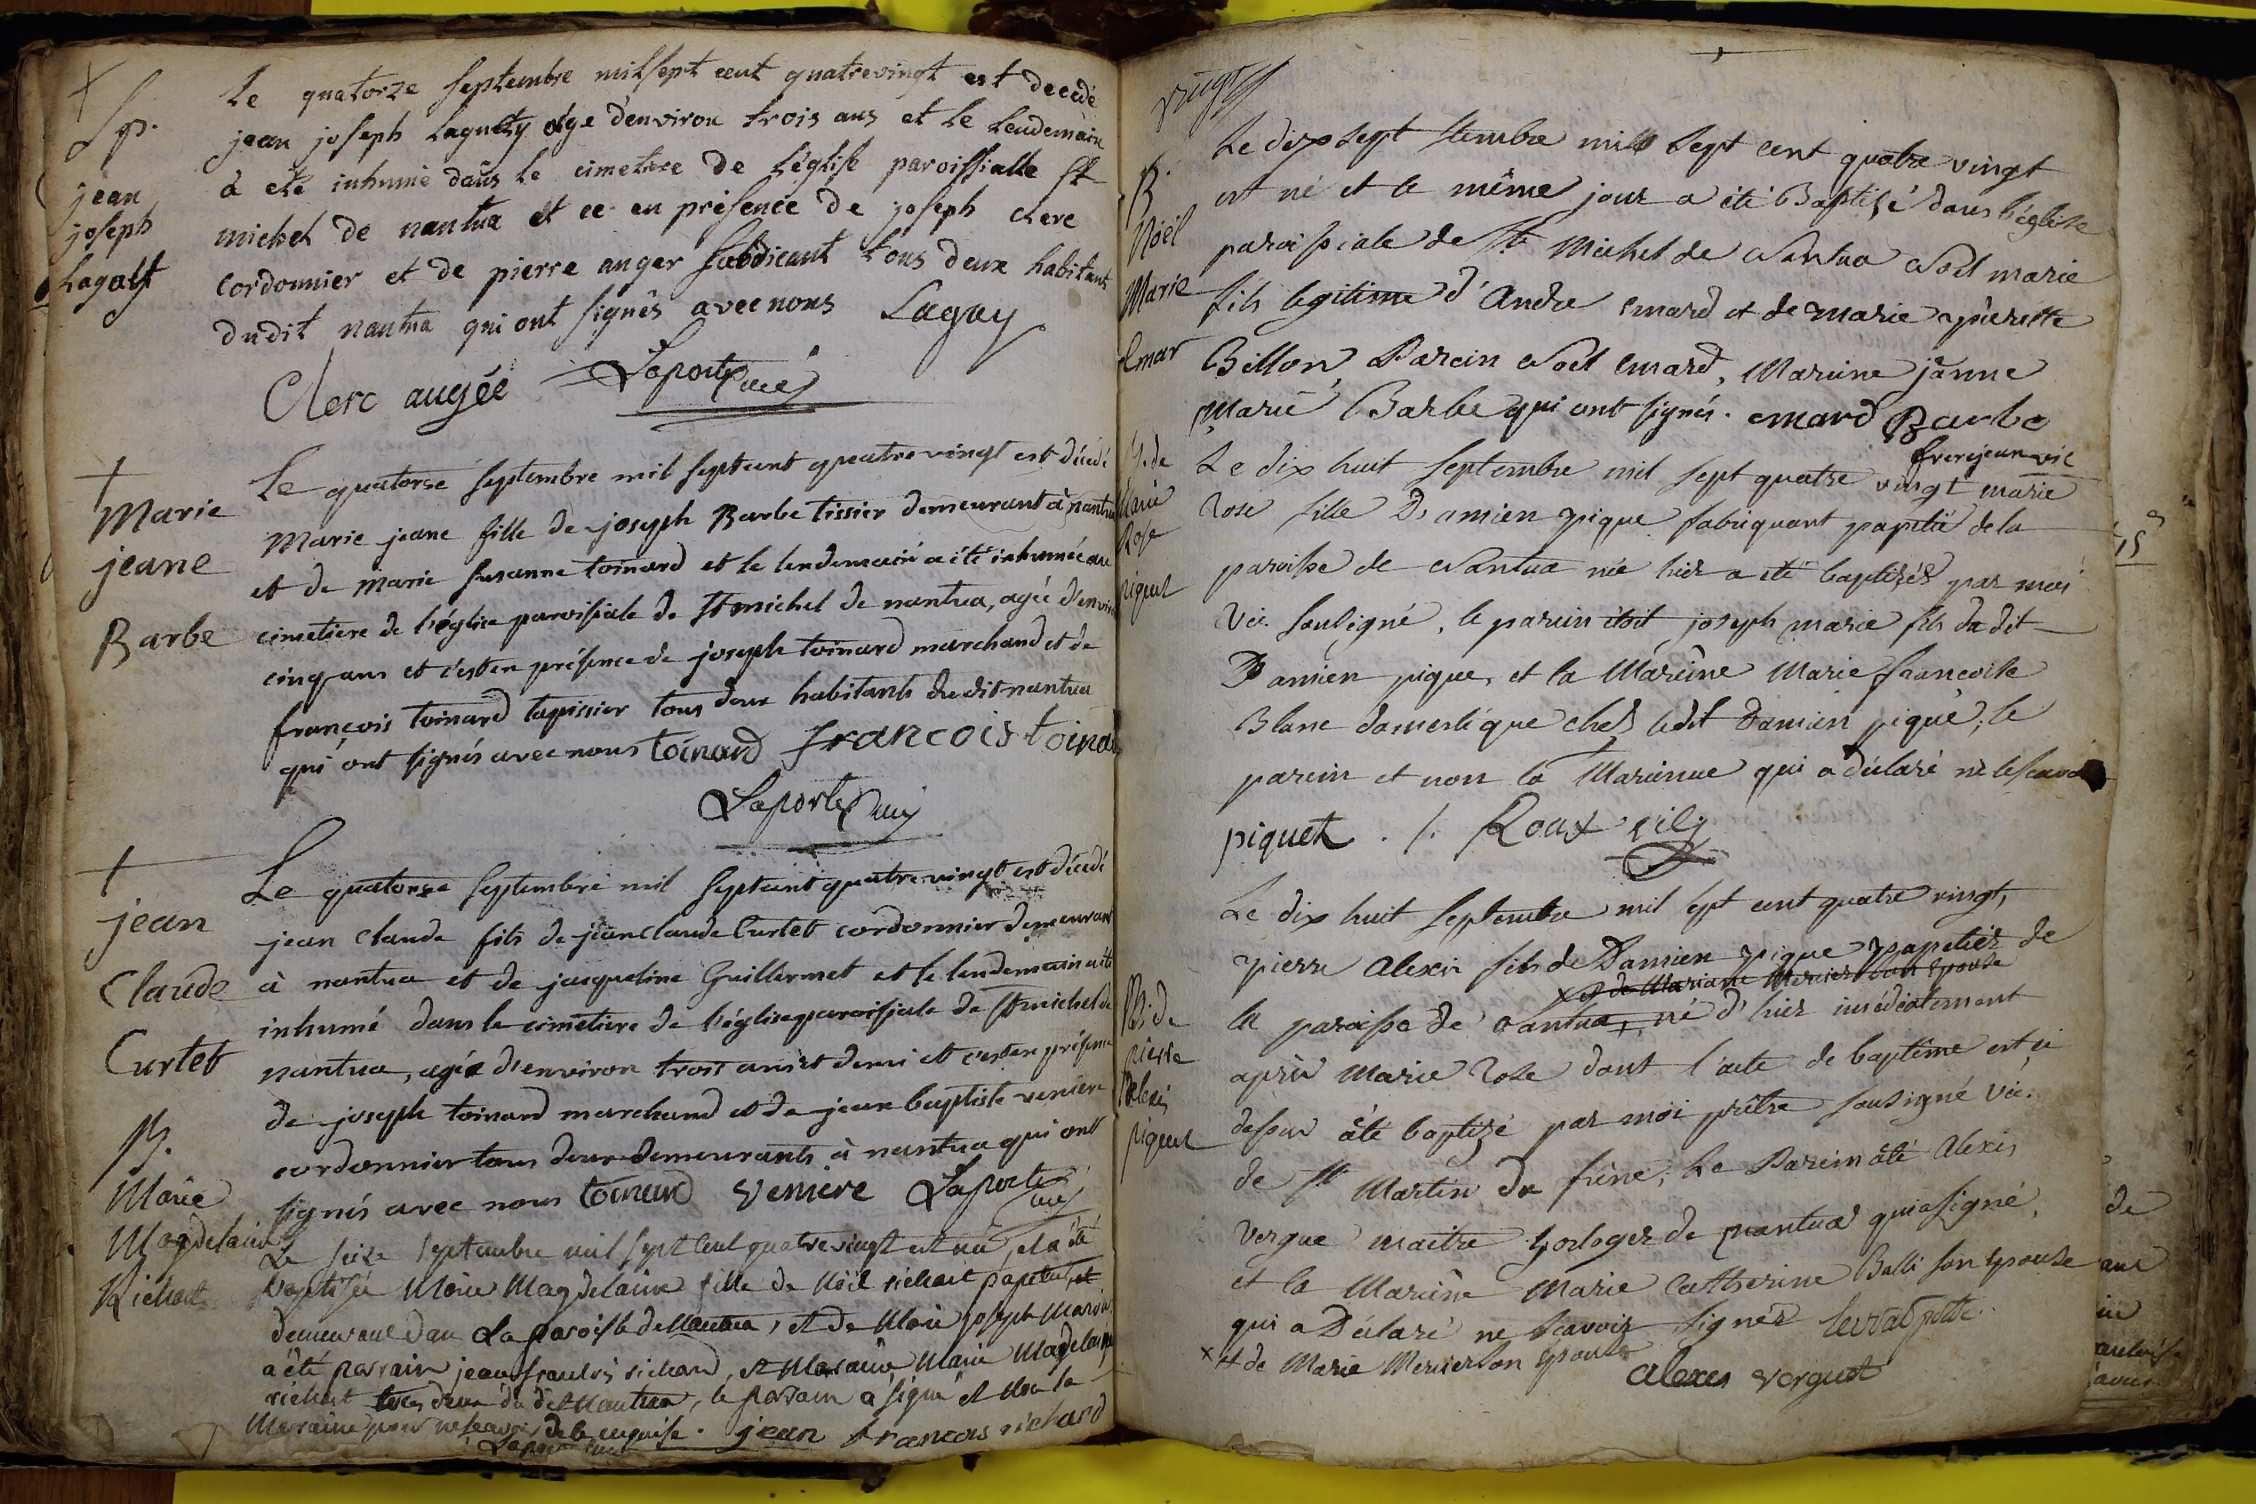 Sp.
jean
joseph
Lagaÿ
Le quatorze septembre mil sept cent quatrevingt est decedé
jean joseph Lagn agé denviron trois ans et le lendemain
à eté inhumé dans le cimetiere de léglise paroissialle st
michel de nantua et ce en présence de joseph clerc
cordonnier et de pierre auger fabricant tous deux habitants
dudit nantua qui ont signés avec nous Lagay
Clerc augée Laporte curé
Marie
jeane
Barbe
Le quatorse septembre mil septcent quatrevingt est décédé
Marie jeane fille de joseph Barbe tissier demeurant à nantua
et de marie susanne toinard et le lendemain a été inhumée au
cimetiere de l'église paroissiale de St michel de nantua, agée d'environ
cinq ans et c'est en présence de joseph toinard marchand et de
françois toinard tapissier tous deux habitants dudit nantua
qui ont signés avec nous toinard francois toina
Laporte curé
jean
Claude
Curtet
Le quatorse septembre mil septcent quatrevingt est décédé
jean Claude fils de jean claude Curtet cordonnier demeurant
à nantua et de jacqueline Guillermet et le lendemain a été
inhumé dans le cimetiere de l'église paroissiale de St michel de
nantua, agée d'environ trois ans et demi et c'est en présence
de joseph toinard marchand et de jean baptiste veniere
cordonnier tous deux demeurants à nantua qui ont
signés avec nous toinard veniere Laporte curé
B.
Marie
Magdelaine
Richart
Le seize septembre mil sept cent quatre vingt est née, et a été
baptisée Marie Magdelaine fille de Noël richart papetier, et
demeurant dans la paroisse de Nantua, et de Marie joseph
a été parrain jean françois richard, et Maraine Marie Magdelaine
richart tous deux du dit Nantua, le parrain a signé et non la
Marraine pour ne scavoir de ce enquise. jean francois richard
Laporte curé
vingt
B.
Noël
Marie
Emar
Le dix sept tembre mil sept cent quatre vingt
est né et le même jour a été Baptisé dans l'église
paroissiale de St Michel de Nantua Noël marie
fils legitime d'Andre emard et de marie pierrette
Billon, Parein Noël emard, Mareine janne
Marie Barbe qui ont signés. emard Barbe
frerejean vic
B. de
Marie
Rose
piquet
Le dix huit septembre mil sept quatre vingt marie
rose fille Damien pique fabriquant papetié de la
paroisse de Nantua née hier a été baptisée par moi
vic. soussigné, le parein étoit joseph marie fils du dit
Damien pique, et la Mareine Marie francoise
Blanc domestique chez ledit Damien piquè, le
parein et non la Mareinne qui a déclaré ne le scavoir
piquet ./. Roux vic
B. de
pierre
Alexis
piquet
Le dix huit septembre mil sept cent quatre vingt,
pierre Alexis fils de Damien pique papetier de
x et de Mariane Mercier son epouse
la paroisse de Nantua, né d'hier imédiatement
après Marie Rose dont l'acte de baptême est ci
dessus à été baptizé par moi prêtre soussigné vic.
de St Martin du frêne, Le Parein à été Alexis
vergue maitre horloger de nantua qui a signé,
et la Mareine Marie Catherine Balli son epouse
qui a Déclaré ne scavoir signer
x et de Marie Mercier son epouse
Alexis verguet
15
de